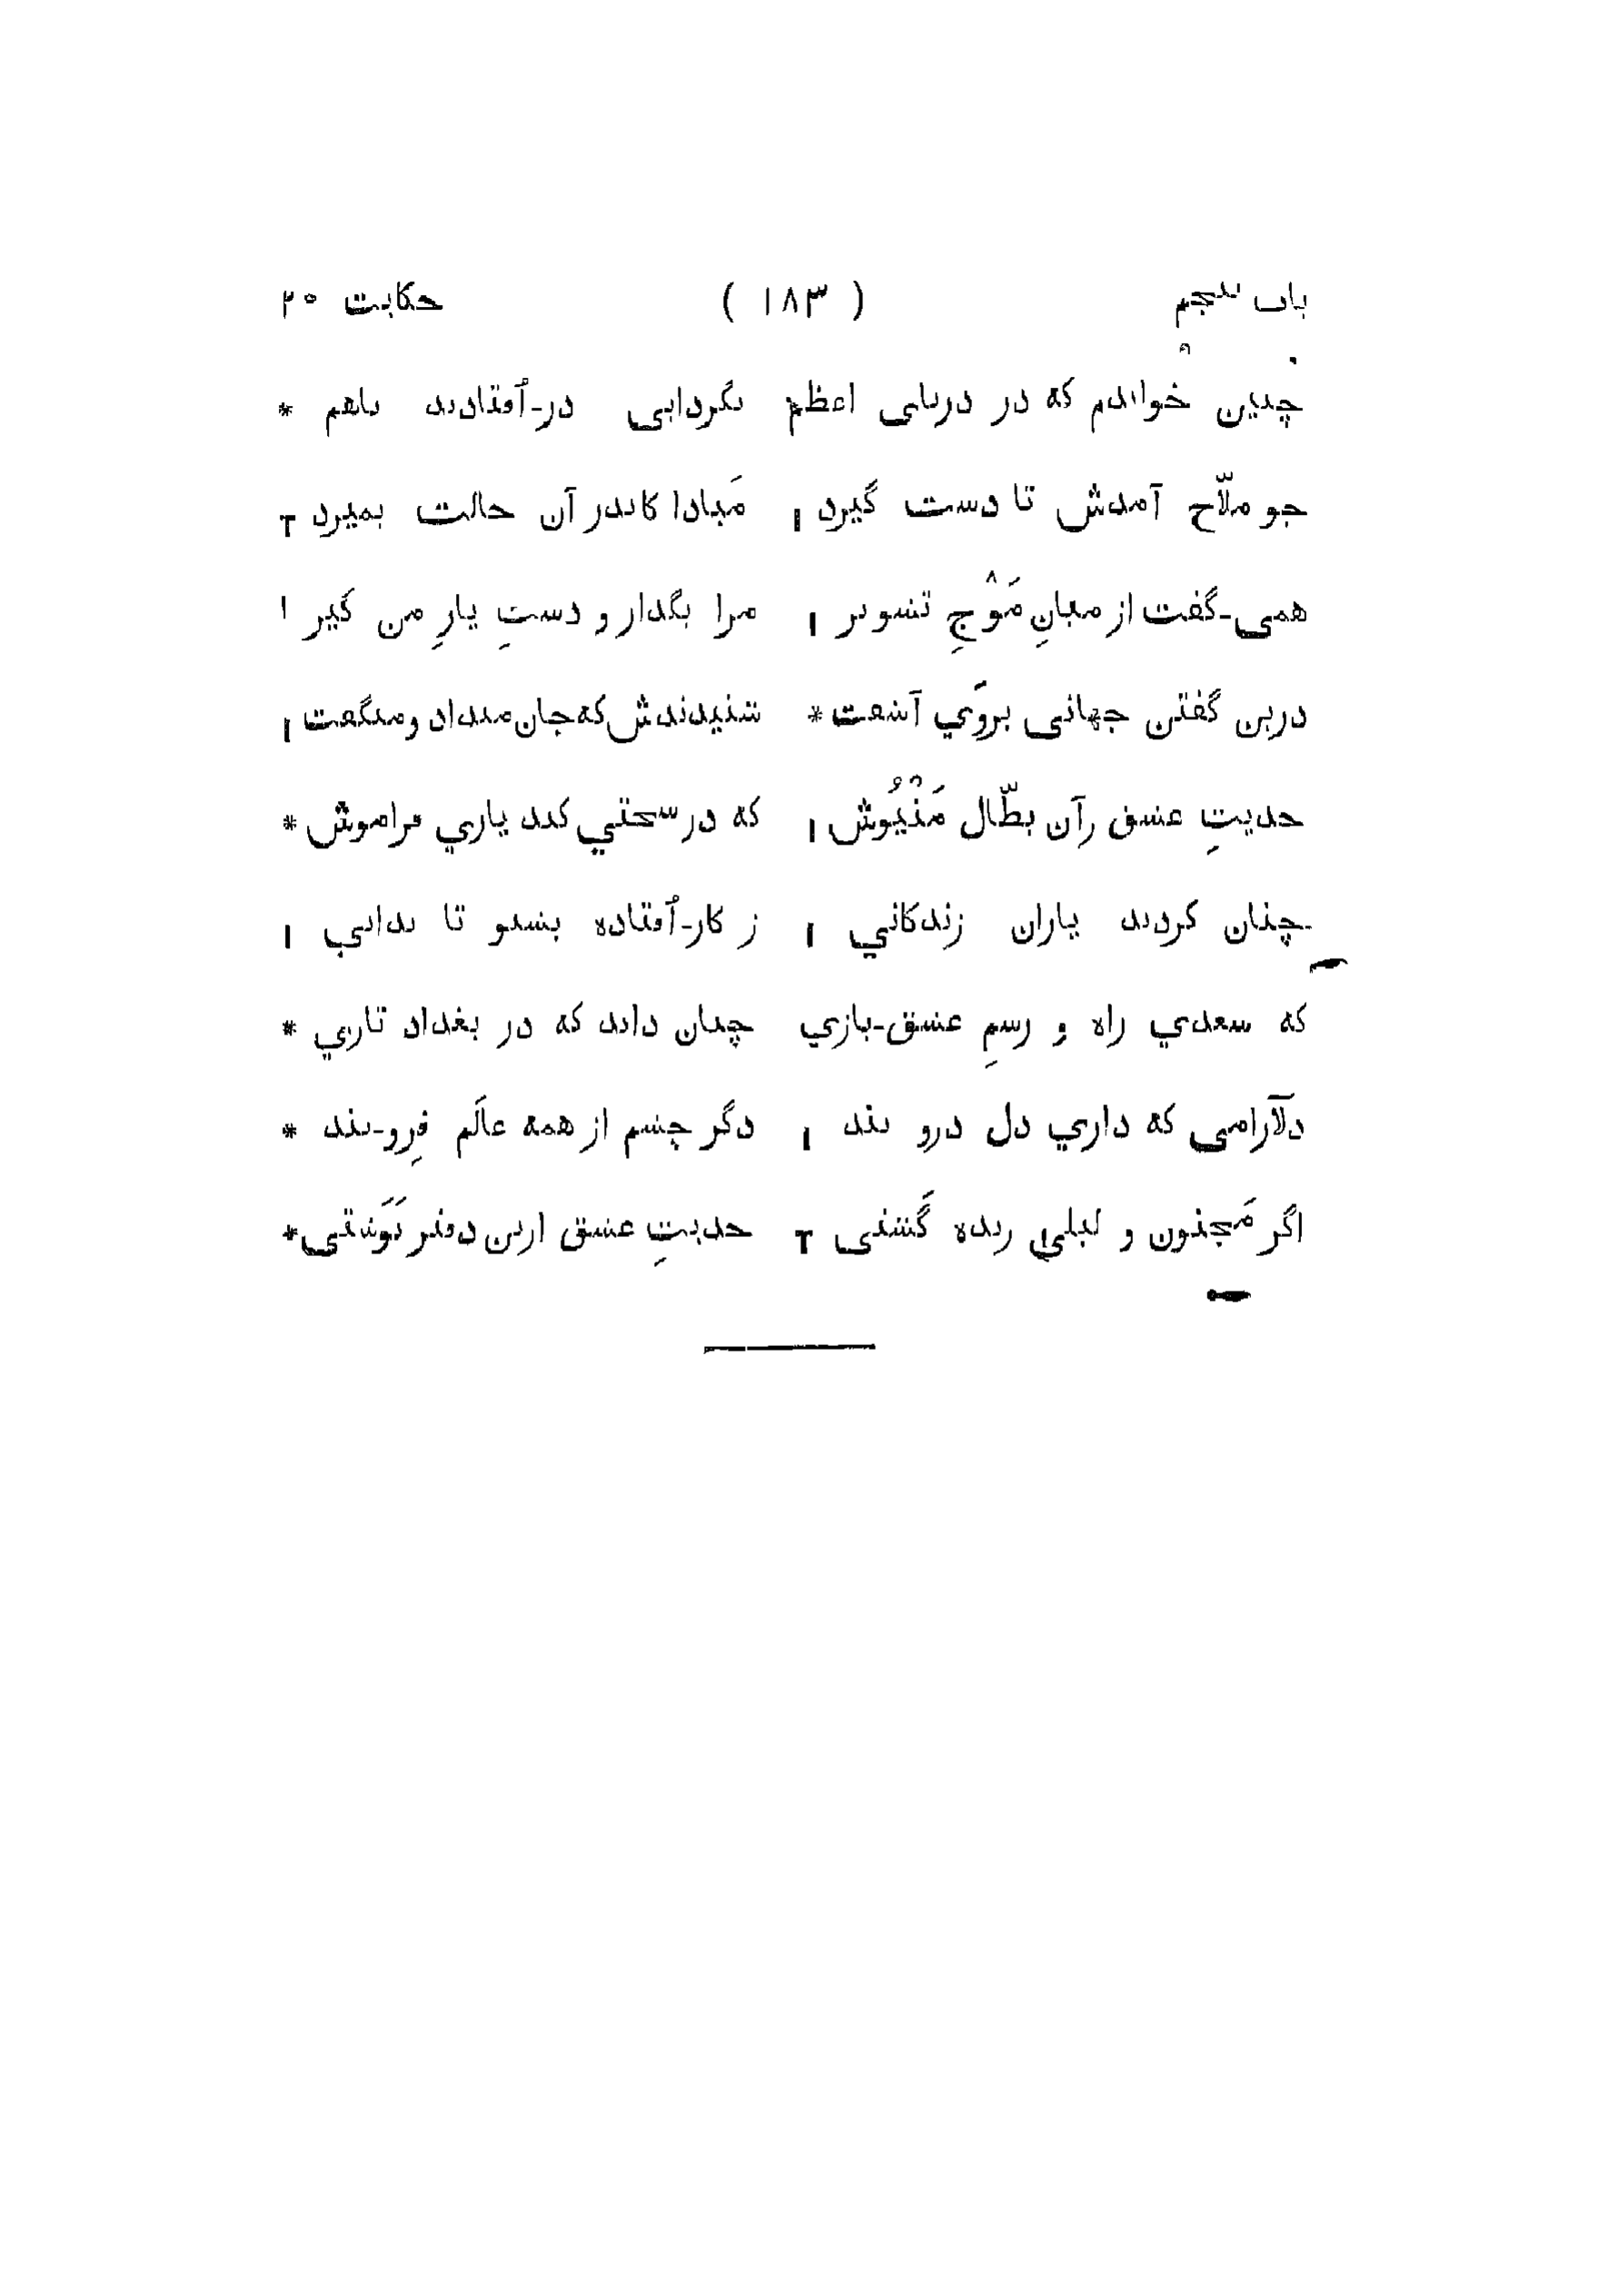 باب پنجم ( ۱۸۳ ) حکایت ۲۰
چنین خواندم که در دریای اعظم بگردابی در-اُفتادند باهم *
چو ملّاح آمدش تا دست گیرد ا مَبادا کاندر آن حالت بمیرد ٣
همی-گفت از میانِ مَوْجِ تشویر ا مرا بگذار و دستِ یارِ من گیر ا
درین گفتن جهانی بروَي آشفت * شنیدندش که جان میداد و میگفت ا
حدیثِ عشق زآن بطّال مَنْیُوش ا که در سختي کند یاري فراموش *
چنان کردند یاران زندگاني ا ز کار-اُفتاده بشنو تا بداني ا
که سعدي راه و رسمِ عشق-بازي چنان داند که در بغداد تازي *
دلآرامی که داري دل درو بند ا دگر چشم از همه عالَم فِرو-بند *
اگر مَجنون و لیلي زنده گَشتی ٣ حدیثِ عشق ازین دفتر نَوَشتی *